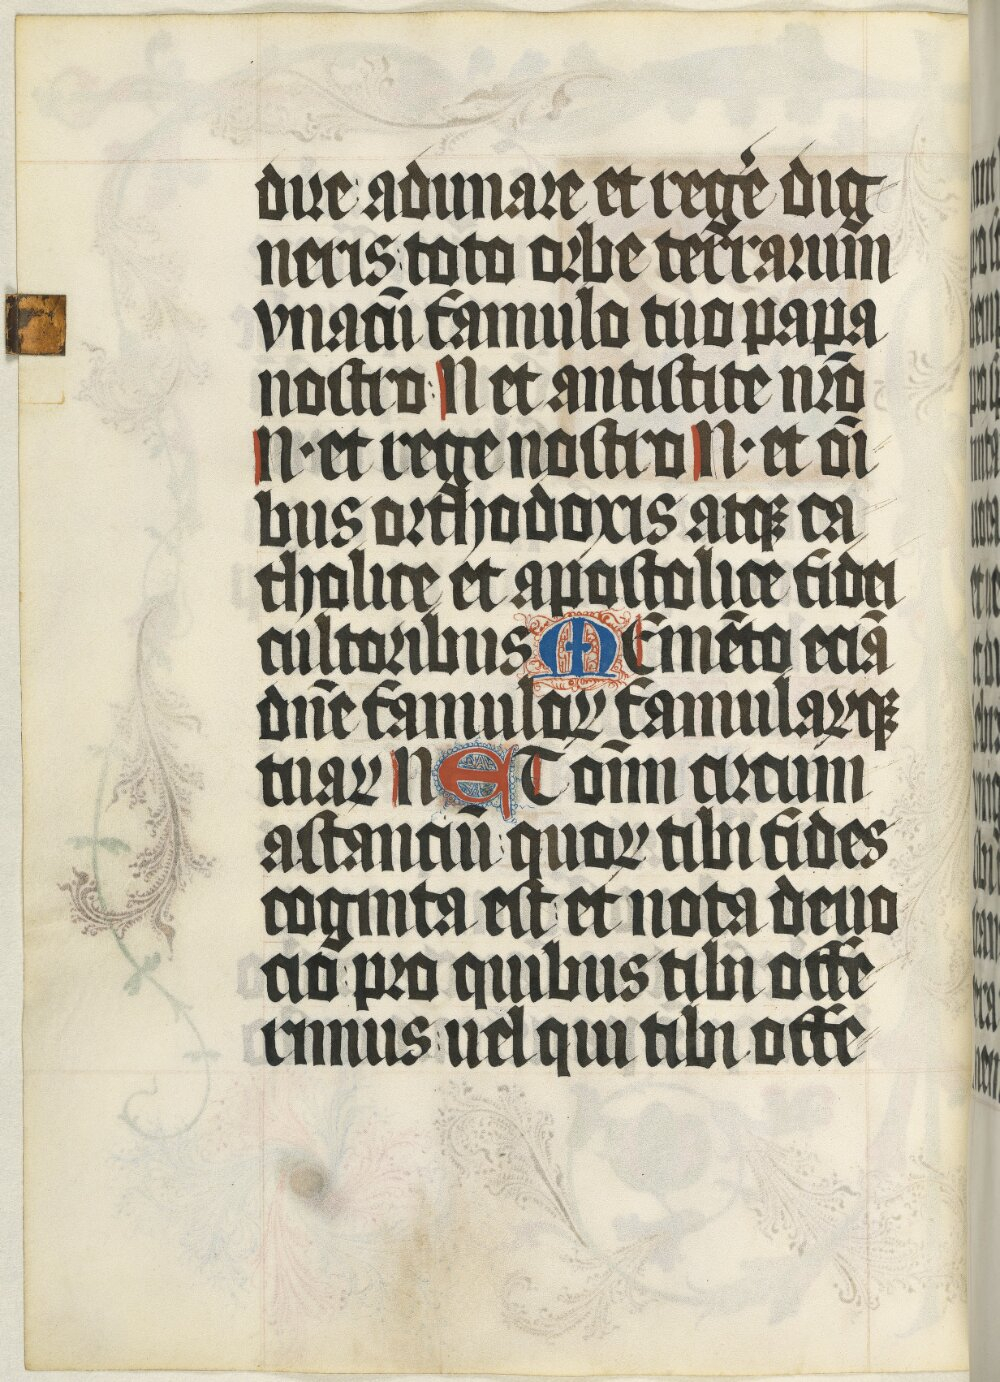 dire adunare et regẽ dig
neris toto orbe terrarum
vnacũ famulo tuo papa
nostro N et antistite nr̃o
N· et rege nostro N· et oĩ
bus orthodoxis atqꝫ ca
tholice et apostolice fidei
cultoribus MEmẽto eciã
dñe famuloꝝ famularꝝqꝫ
tuaꝝ N ET oĩm circum
astanciũ quoꝝ tibi fides
cognita est et nota deuo
ciõ pro quibus tibi offe
rimus uel qui tibi offe